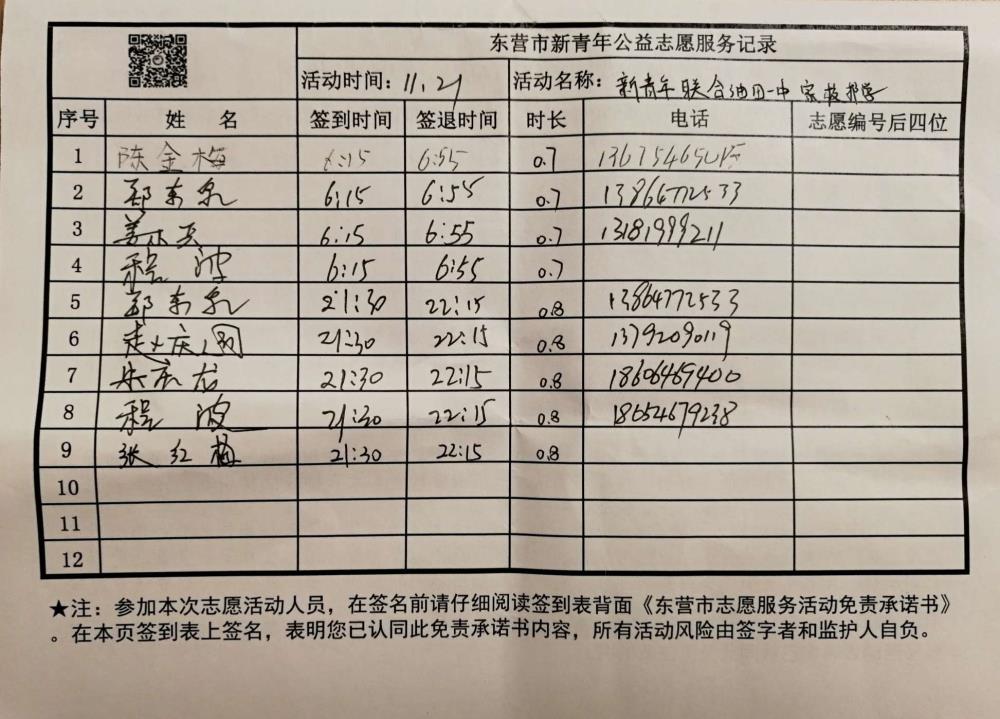 东营市新青年公益志愿服务记录
活动时间：11.21 活动名称：新青年联合油田一中家校护学
序号 姓 名 签到时间 签退时间 时长 电话 志愿编号后四位
1 陈金梅 6:15 6:55 0.7
2 郑东泉 6:15 6:55 0.7 13864772533
3 6:15 6:55 0.7 13181999211
4 程波 6:15 6:55 0.7
5 郑东泉 21:30 22:15 0.8 13864772533
6 21:30 22:15 0.8 13792090119
7 21:30 22:15 0.8 18606469400
8 程波 21:30 22:15 0.8 18654679238
9 张红梅 21:30 22:15 0.8
10
11
12
★注：参加本次志愿活动人员，在签名前请仔细阅读签到表背面《东营市志愿服务活动免责承诺书》
。在本页签到表上签名，表明您已认同此免责承诺书内容，所有活动风险由签字者和监护人自负。